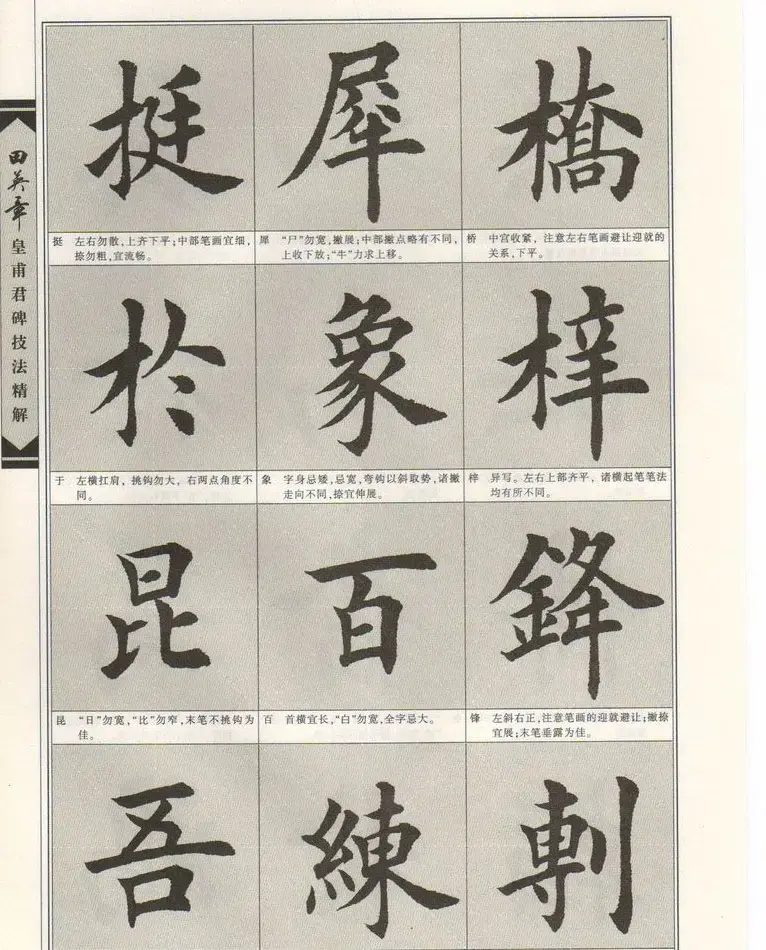 田英章
皇甫君碑技法精解
挺 犀 橋
挺 左右勿散,上齐下平;中部笔画宜细,
捺勿粗,宜流畅。
犀 “尸”勿宽,撇展;中部撇点略有不同,
上收下放;“牛”力求上移。
桥 中宫收紧,注意左右笔画避让迎就的
关系,下平。
於 象 梓
于 左横扛肩,挑钩勿大,右两点角度不
同。
象 字身忌矮,忌宽,弯钩以斜取势,诸撇
走向不同,捺宜伸展。
梓 异写。左右上部齐平,诸横起笔笔法
均有所不同。
昆 百 鋒
昆 “日”勿宽,“比”勿窄,末笔不挑钩为
佳。
百 首横宜长,“白”勿宽,全字忌大。
锋 左斜右正,注意笔画的迎就避让;撇捺
宜展;末笔垂露为佳。
吾 練 剸